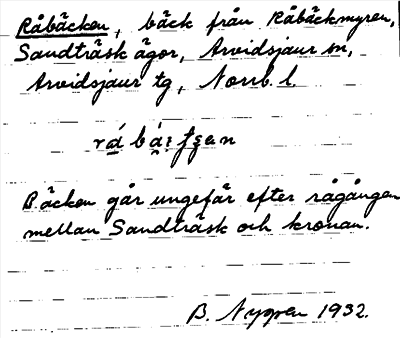 Råbäcken, bäck från Råbäckmyren,
Sandträsk ägor, Arvidsjaur sn,
Arvidsjaur tg, Norrb. l.
Bäcken går ungefär efter rågången
mellan Sandträsk och kronan.
B. Nygren 1932.